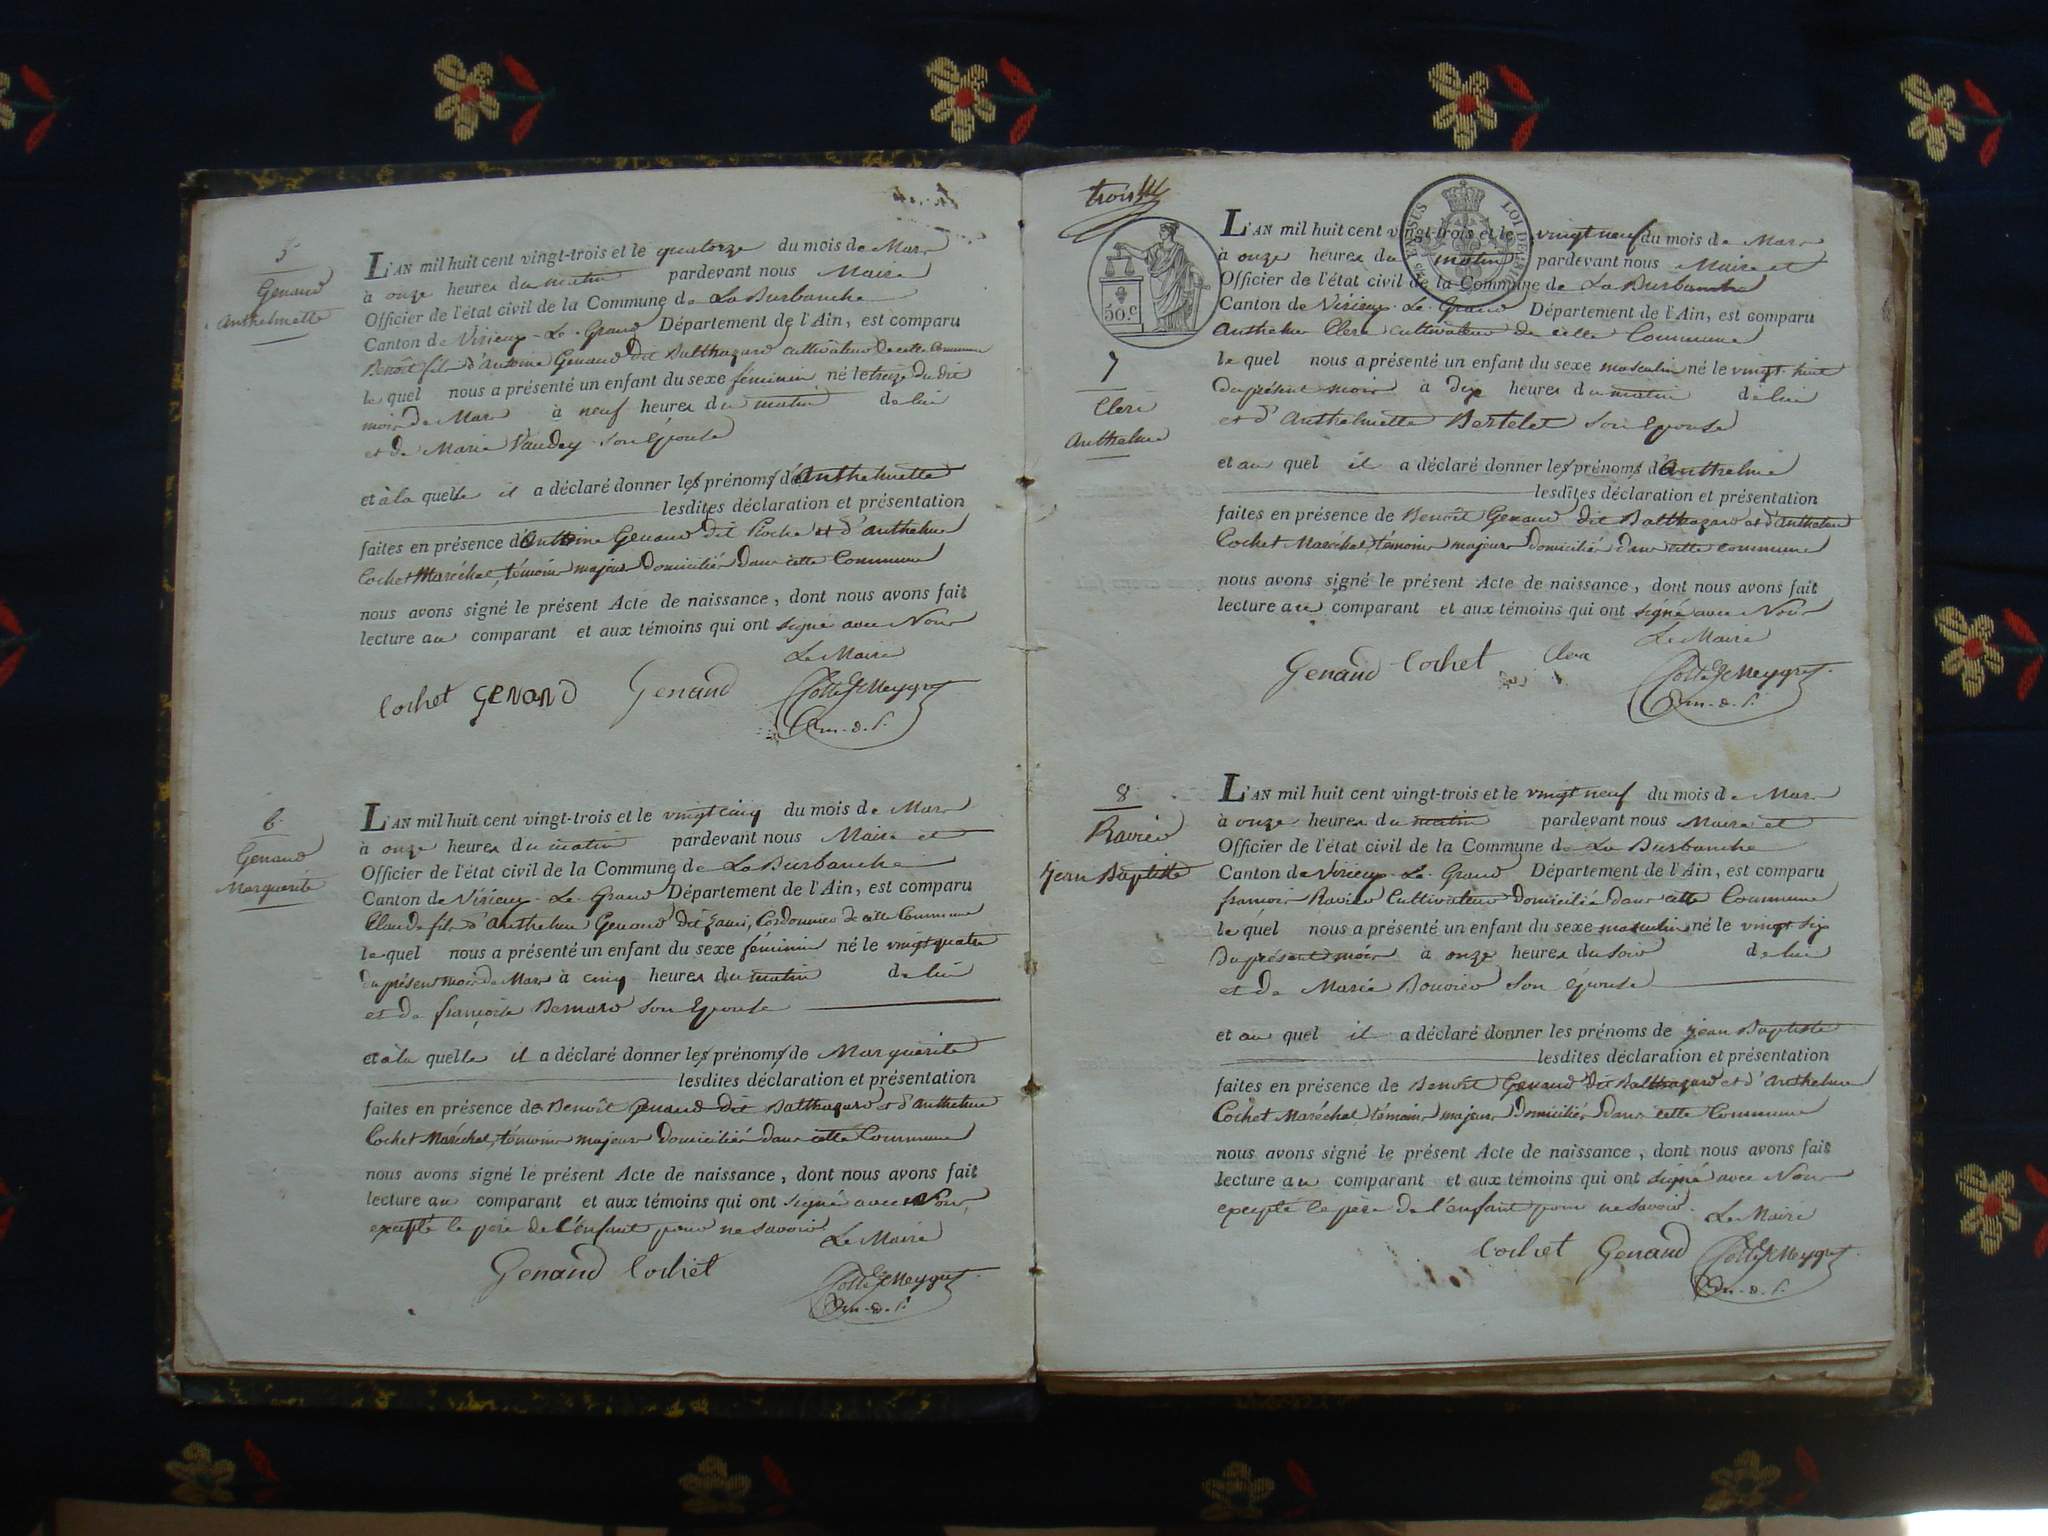 5
Genand
Anthelmette
L'AN mil huit cent vingt-trois et le quatorze du mois de Mars
à onze heures du matin pardevant nous Maire
Officier de l'état civil de la Commune de La Burbanche
Canton de Virieux-Le-Grand Département de l'Ain, est comparu
Benoît fils d'Antoine Genand dit Balthazard cultivateur de cette Commune
le quel nous a présenté un enfant du sexe féminin né le treize du dit
mois de Mars à neuf heures du matin de lui
et de Marie Vaudey son Epouse
et à la quelle il a déclaré donner les prénoms d'Anthelmette
lesdites déclaration et présentation
faites en présence d'Antoine Genand dit Pioche et d'Anthelme
Cochet Maréchal, témoins majeurs domiciliés dans cette Commune
nous avons signé le présent Acte de naissance, dont nous avons fait
lecture au comparant et aux témoins qui ont signé avec Nous
Le Maire
Cochet GENAND Genand
6
Genand
Marguerite
L'AN mil huit cent vingt-trois et le vingt cinq du mois de Mars
à onze heures du matin pardevant nous Maire et
Officier de l'état civil de la Commune de La Burbanche
Canton de Virieux-Le-Grand Département de l'Ain, est comparu
Claude fils d'Anthelme Genand dit Cordonnier de cette Commune
le quel nous a présenté un enfant du sexe féminin né le vingt quatre
du présent mois de Mars à cinq heures du matin de lui
et de françoise Bernard son Epouse
et à la quelle il a déclaré donner les prénoms de Marguerite
lesdites déclaration et présentation
faites en présence de Benoît Genand dit Balthazard et d'Anthelme
Cochet Maréchal, témoins majeurs domiciliés dans cette Commune
nous avons signé le présent Acte de naissance, dont nous avons fait
lecture au comparant et aux témoins qui ont signé avec Nous,
excepté le père de l'enfant pour ne savoir
Le Maire
Genand Cochet
trois
50.c
LOI DE 1816
7
Clerc
Anthelme
L'AN mil huit cent vingt-trois et le vingt neuf du mois de Mars
à onze heures du matin pardevant nous Maire et
Officier de l'état civil de la Commune de La Burbanche
Canton de Virieux-Le-Grand Département de l'Ain, est comparu
Anthelme Clerc cultivateur de cette Commune
le quel nous a présenté un enfant du sexe masculin né le vingt huit
du présent mois à dix heures du matin de lui
et d'Anthelmette Bertelet son Epouse
et au quel il a déclaré donner les prénoms d'Anthelme
lesdites déclaration et présentation
faites en présence de Benoît Genand dit Balthazard et d'Anthelme
Cochet Maréchal, témoins majeurs domiciliés dans cette commune
nous avons signé le présent Acte de naissance, dont nous avons fait
lecture au comparant et aux témoins qui ont signé avec Nous
Le Maire
Genand Cochet Clerc
8
Ravier
Jean Baptiste
L'AN mil huit cent vingt-trois et le vingt neuf du mois de Mars
à onze heures du matin pardevant nous Maire et
Officier de l'état civil de la Commune de La Burbanche
Canton de Virieux-Le-Grand Département de l'Ain, est comparu
françois Ravier Cultivateur domicilié dans cette Commune
le quel nous a présenté un enfant du sexe masculin né le vingt six
du présent mois à onze heures du soir de lui
et de Marie Bouvier son épouse
et au quel il a déclaré donner les prénoms de Jean Baptiste
lesdites déclaration et présentation
faites en présence de Benoît Genand dit Balthazard et d'Anthelme
Cochet Maréchal, témoins majeurs domiciliés dans cette Commune
nous avons signé le présent Acte de naissance, dont nous avons fait
lecture au comparant et aux témoins qui ont signé avec Nous
excepté le père de l'enfant pour ne savoir.
Le Maire
Cochet Genand